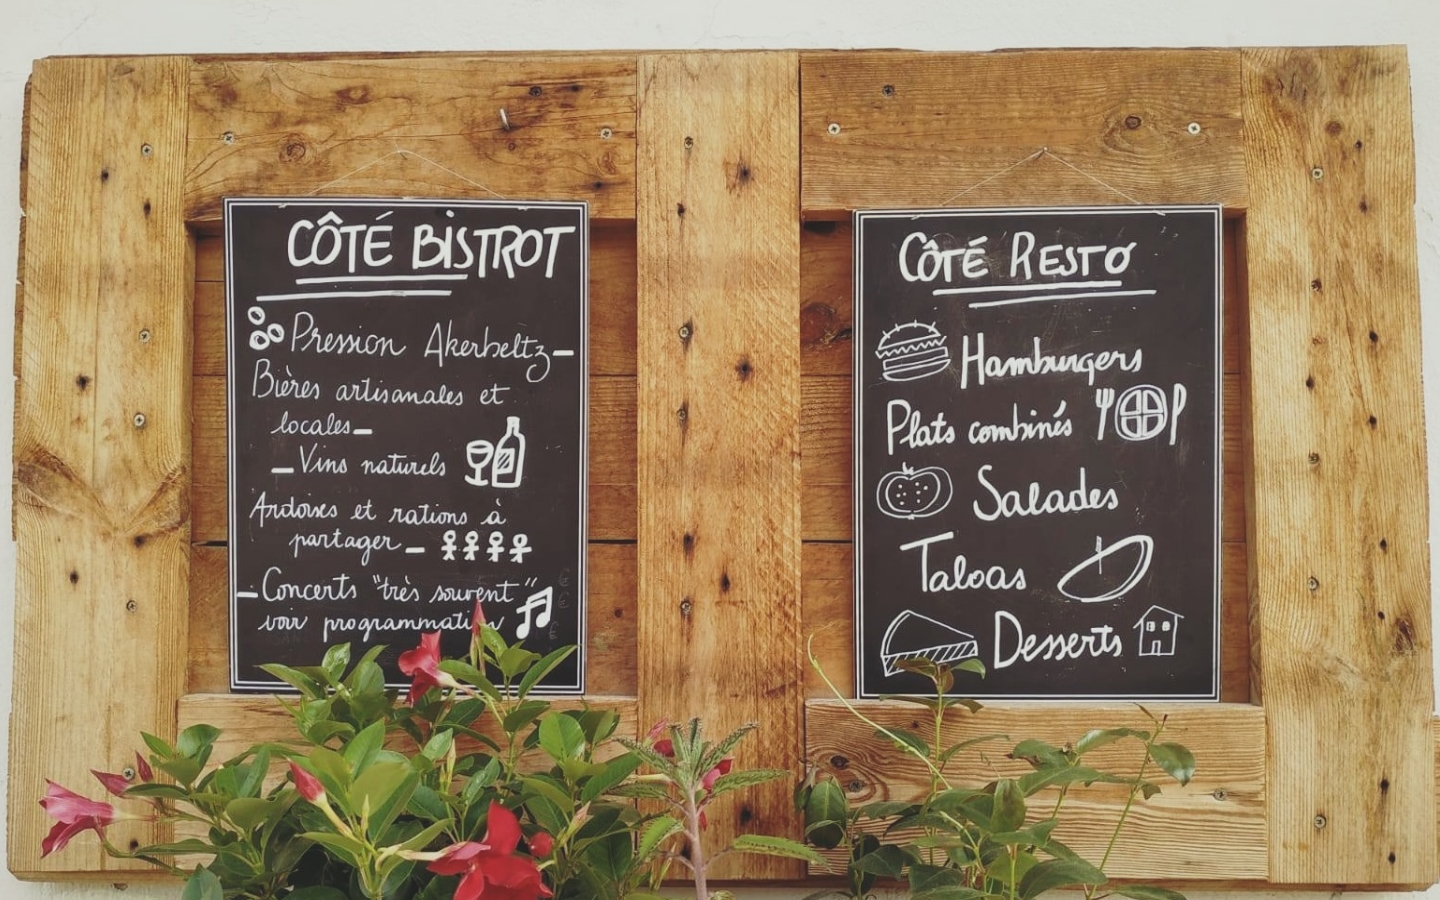 CÔTÉ BISTROT
Pression Akerbeltz_
Bières artisanales et
locales_
_Vins naturels
Ardoises et rations à
partager_
_Concerts "très souvent"
voir programmation
CÔTÉ RESTO
Hamburgers
Plats combinés
Salades
Taloas
Desserts